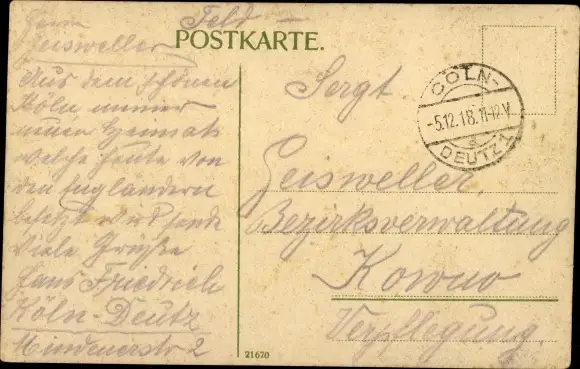 Feld-
POSTKARTE.
Herrn
Geisweller
Aus dem schönen
Köln unserer
neuen Heimat
welche heute von
den Engländern
besetzt wird sende
viele Grüße
Hans Friedrich
Köln-Deutz
Mindenerstr 2
CÖLN-
-5.12.18.11-12V.
DEUTZ 1
Sergt.
Geisweller,
Bezirksverwaltung
Kowno
Verpflegung.
21670